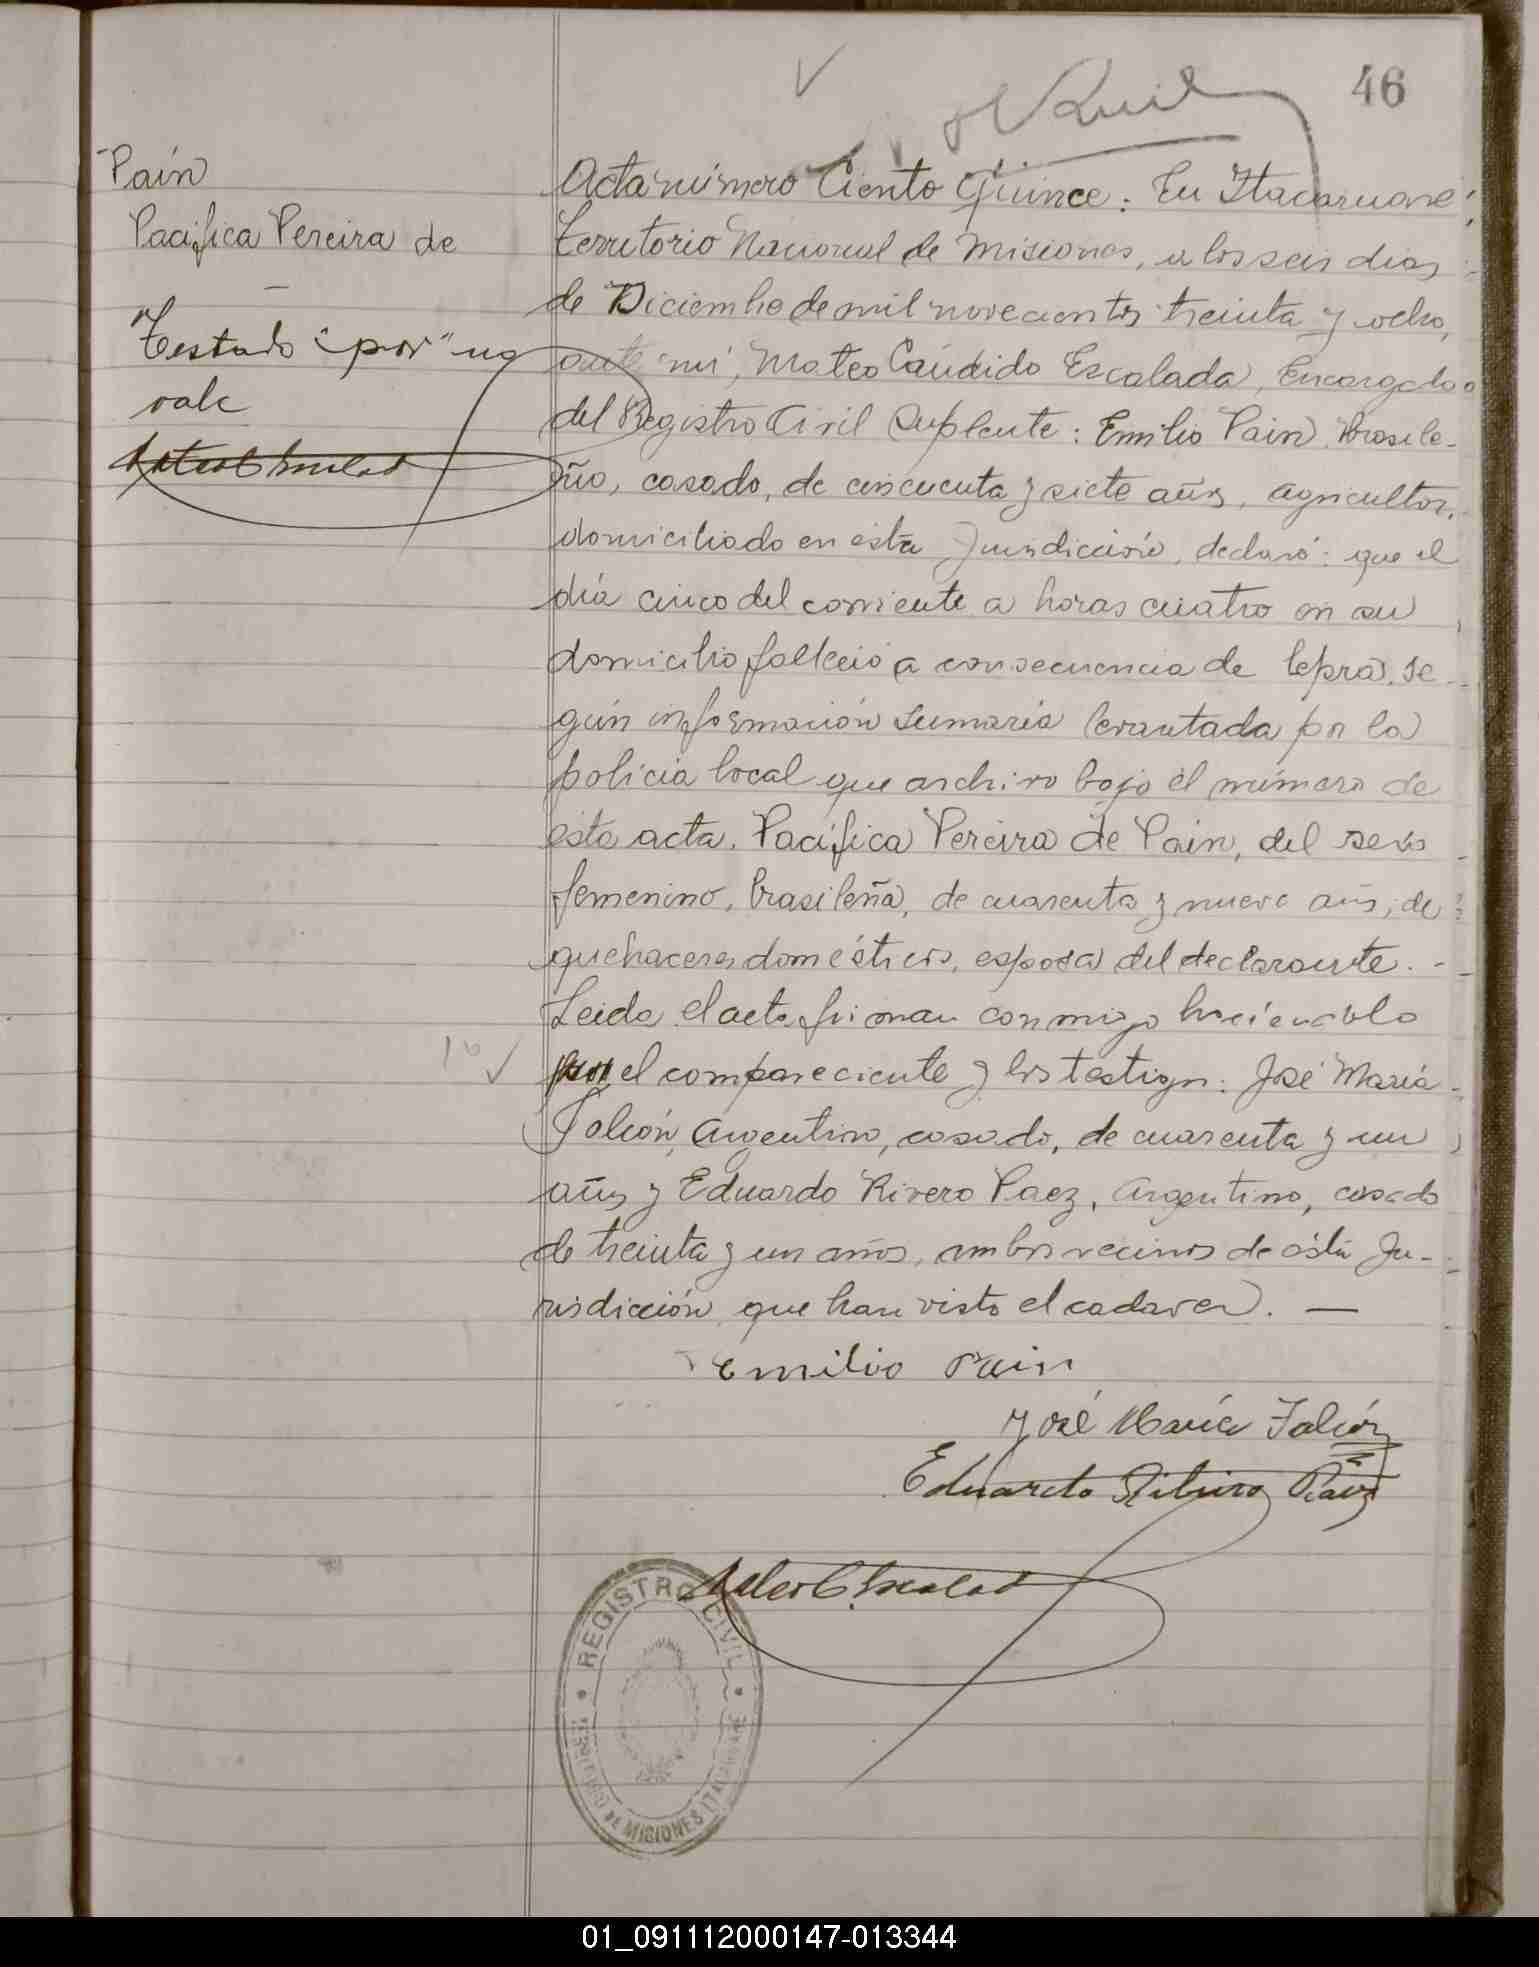 46
Pain
Pacifica Pereira de
Testado "por" no
vale
Acta número Ciento Quince: En Itacaruaré,
territorio Nacional de Misiones, a los seis dias
de Diciembre de mil novecientos treinta y ocho,
ante mi, Mateo Cándido Escalada, Encargado
del Registro Civil Suplente: Emilio Pain, brasile-
ño, casado, de cincuenta y siete años, agricultor,
domiciliado en esta Jurisdicción, declaró: que el
día cinco del corriente a horas cuatro en su
domicilio falleció a consecuencia de lepra, se-
gún información sumaria levantada por la
policia local que archivo bajo el número de
esta acta. Pacifica Pereira de Pain, del sexo
femenino, brasileña, de cuarenta y nueve años, de
quehaceres domésticos, esposa del declarante. -
Leida el acta firman conmigo haciendolo
por el compareciente y los testigos: José María
Falcón, Argentino, casado, de cuarenta y un
años y Eduardo Rivero Paez, Argentino, casado
de treinta y un años, ambos vecinos de ésta Ju-
risdicción que han visto el cadaver. —
Emilio Pain
José María Falcón
Eduardo Ribero Paez
REGISTRO CIVIL
TERRITORIO DE MISIONES ITACARUARE
01_091112000147-013344